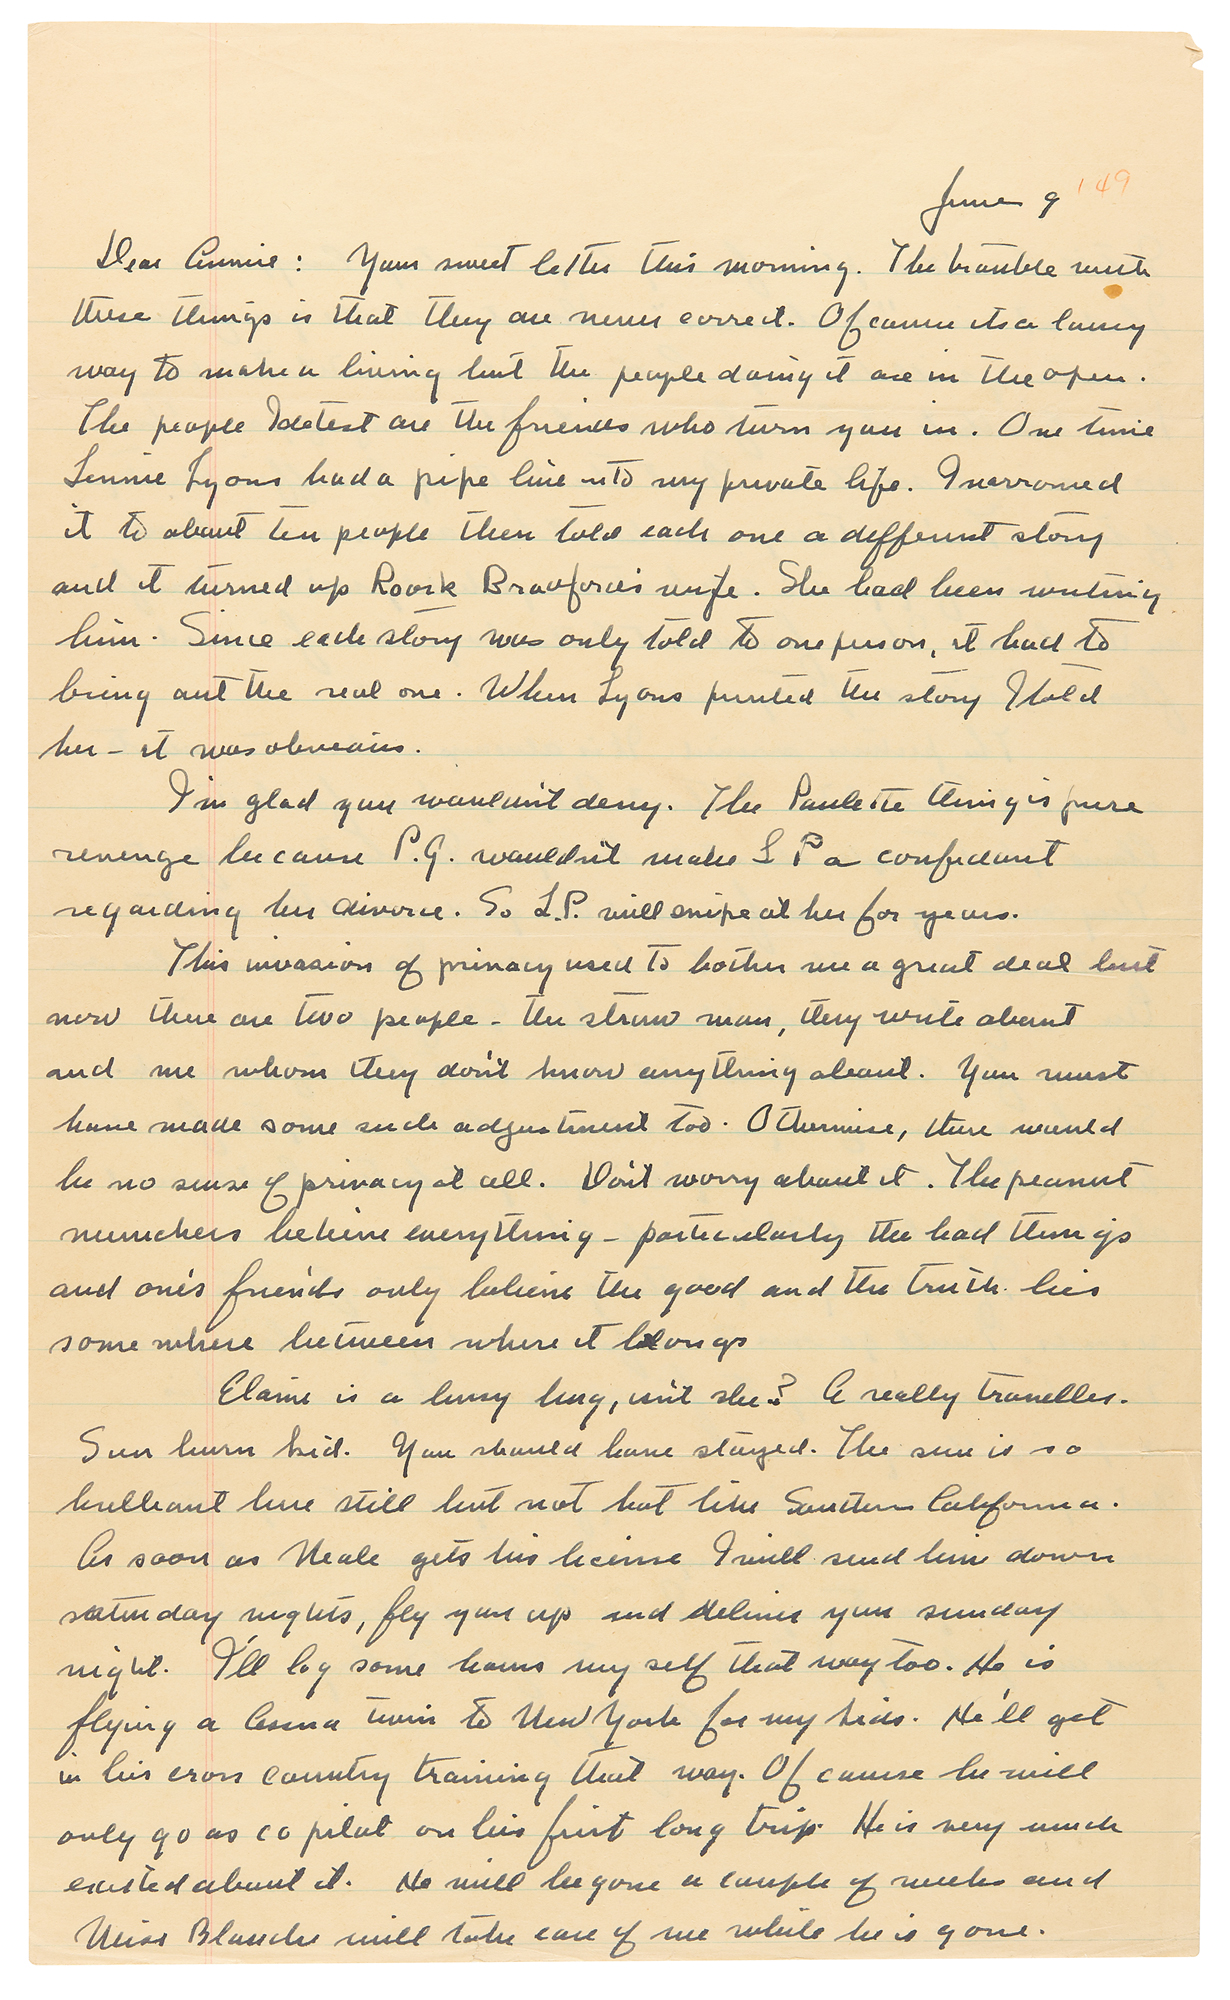 June 9 '49
Dear Annie: Your sweet letter this morning. The trouble with
these things is that they are never correct. Of course its a lousy
way to make a living but the people doing it are in the open.
The people I detest are the friends who turn you in. One time
Lennie Lyons had a pipe line into my private life. I narrowed
it to about ten people then told each one a different story
and it turned up Roark Bradford's wife. She had been writing
him. Since each story was only told to one person, it had to
bring out the real one. When Lyons printed the story I told
her – it was obvious.
I'm glad you wouldn't deny. The Paulette thing is pure
revenge because P.G. wouldn't make L P a confidant
regarding her divorce. So L.P. will snipe at her for years.
This invasion of privacy used to bother me a great deal but
now there are two people – the straw man, they write about
and me whom they don't know anything about. You must
have made some such adjustment too. Otherwise, there would
be no sense of privacy at all. Don't worry about it. The peanut
munchers believe everything – particularly the bad things
and one's friends only believe the good and the truth lies
some where between where it belongs
Elaine is a busy bug, isn't she? A really traveller.
Sun burn kid. You should have stayed. The sun is so
brilliant here still but not hot like Southern California.
As soon as Neale gets his license I will send him down
saturday nights, fly you up and deliver you sunday
night. I'll log some hours my self that way too. He is
flying a Cessna twin to New York for my kids. He'll get
in his cross country training that way. Of course he will
only go as co pilot on his first long trip. He is very much
excited about it. He will be gone a couple of weeks and
Miss Blanche will take care of me while he is gone.